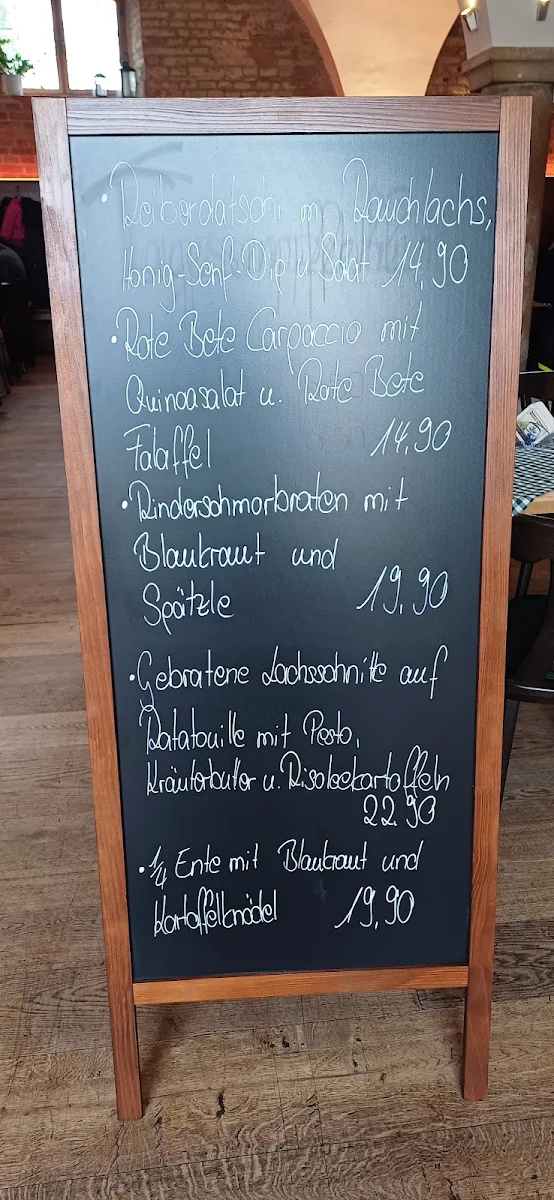 • Reiberdatschi m. Rauchlachs,
Honig-Senf-Dip u. Salat 14,90
• Rote Bete Carpaccio mit
Quinoasalat u. Rote Bete
Falaffel 14,90
• Rinderschmorbraten mit
Blaukraut und
Spätzle 19,90
• Gebratene Lachsschnitte auf
Ratatouille mit Pesto,
Kräuterbutter u. Risoleekartoffeln
22.90
• 1/4 Ente mit Blaukraut und
Kartoffelknödel 19,90